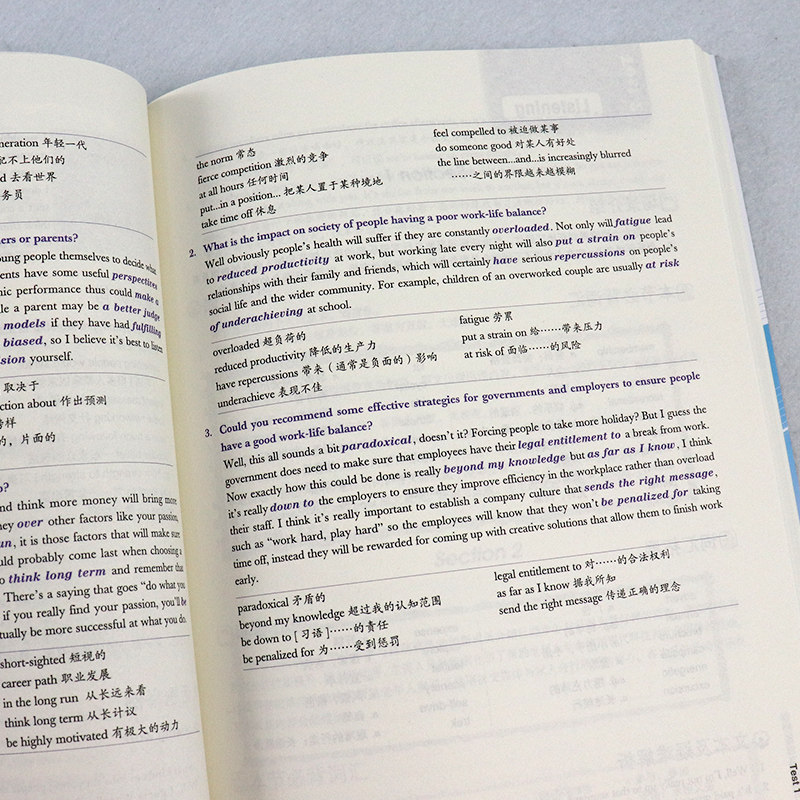 neration 年轻一代
配不上他们的
d 去看世界
务员
ers or parents?
oung people themselves to decide what
ents have some useful perspectives
nic performance thus could make a
le a parent may be a better judge
models if they have had fulfilling
biased, so I believe it's best to listen
sion yourself.
取决于
ction about 作出预测
榜样
的，片面的
o?
nd think more money will bring more
hey over other factors like your passion,
un, it is those factors that will make sure
ould probably come last when choosing a
o think long term and remember that
. There's a saying that goes "do what you
if you really find your passion, you'll be
tually be more successful at what you do.
short-sighted 短视的
career path 职业发展
in the long run 从长远来看
think long term 从长计议
be highly motivated 有极大的动力
Listening
the norm 常态
fierce competition 激烈的竞争
at all hours 任何时间
put...in a position... 把某人置于某种境地
take time off 休息
feel compelled to 被迫做某事
do someone good 对某人有好处
the line between...and...is increasingly blurred
……之间的界限越来越模糊
2. What is the impact on society of people having a poor work-life balance?
Well obviously people's health will suffer if they are constantly overloaded. Not only will fatigue lead
to reduced productivity at work, but working late every night will also put a strain on people's
relationships with their family and friends, which will certainly have serious repercussions on people's
social life and the wider community. For example, children of an overworked couple are usually at risk
of underachieving at school.
overloaded 超负荷的
reduced productivity 降低的生产力
have repercussions 带来（通常是负面的）影响
underachieve 表现不佳
fatigue 劳累
put a strain on 给……带来压力
at risk of 面临……的风险
3. Could you recommend some effective strategies for governments and employers to ensure people
have a good work-life balance?
Well, this all sounds a bit paradoxical, doesn't it? Forcing people to take more holiday? But I guess the
government does need to make sure that employees have their legal entitlement to a break from work.
Now exactly how this could be done is really beyond my knowledge but as far as I know, I think
it's really down to the employers to ensure they improve efficiency in the workplace rather than overload
their staff. I think it's really important to establish a company culture that sends the right message,
such as "work hard, play hard" so the employees will know that they won't be penalized for taking
time off, instead they will be rewarded for coming up with creative solutions that allow them to finish work
early.
Section 2
paradoxical 矛盾的
beyond my knowledge 超过我的认知范围
be down to [ 习语 ]……的责任
be penalized for 为……受到惩罚
legal entitlement to 对……的合法权利
as far as I know 据我所知
send the right message 传递正确的理念
Test 1